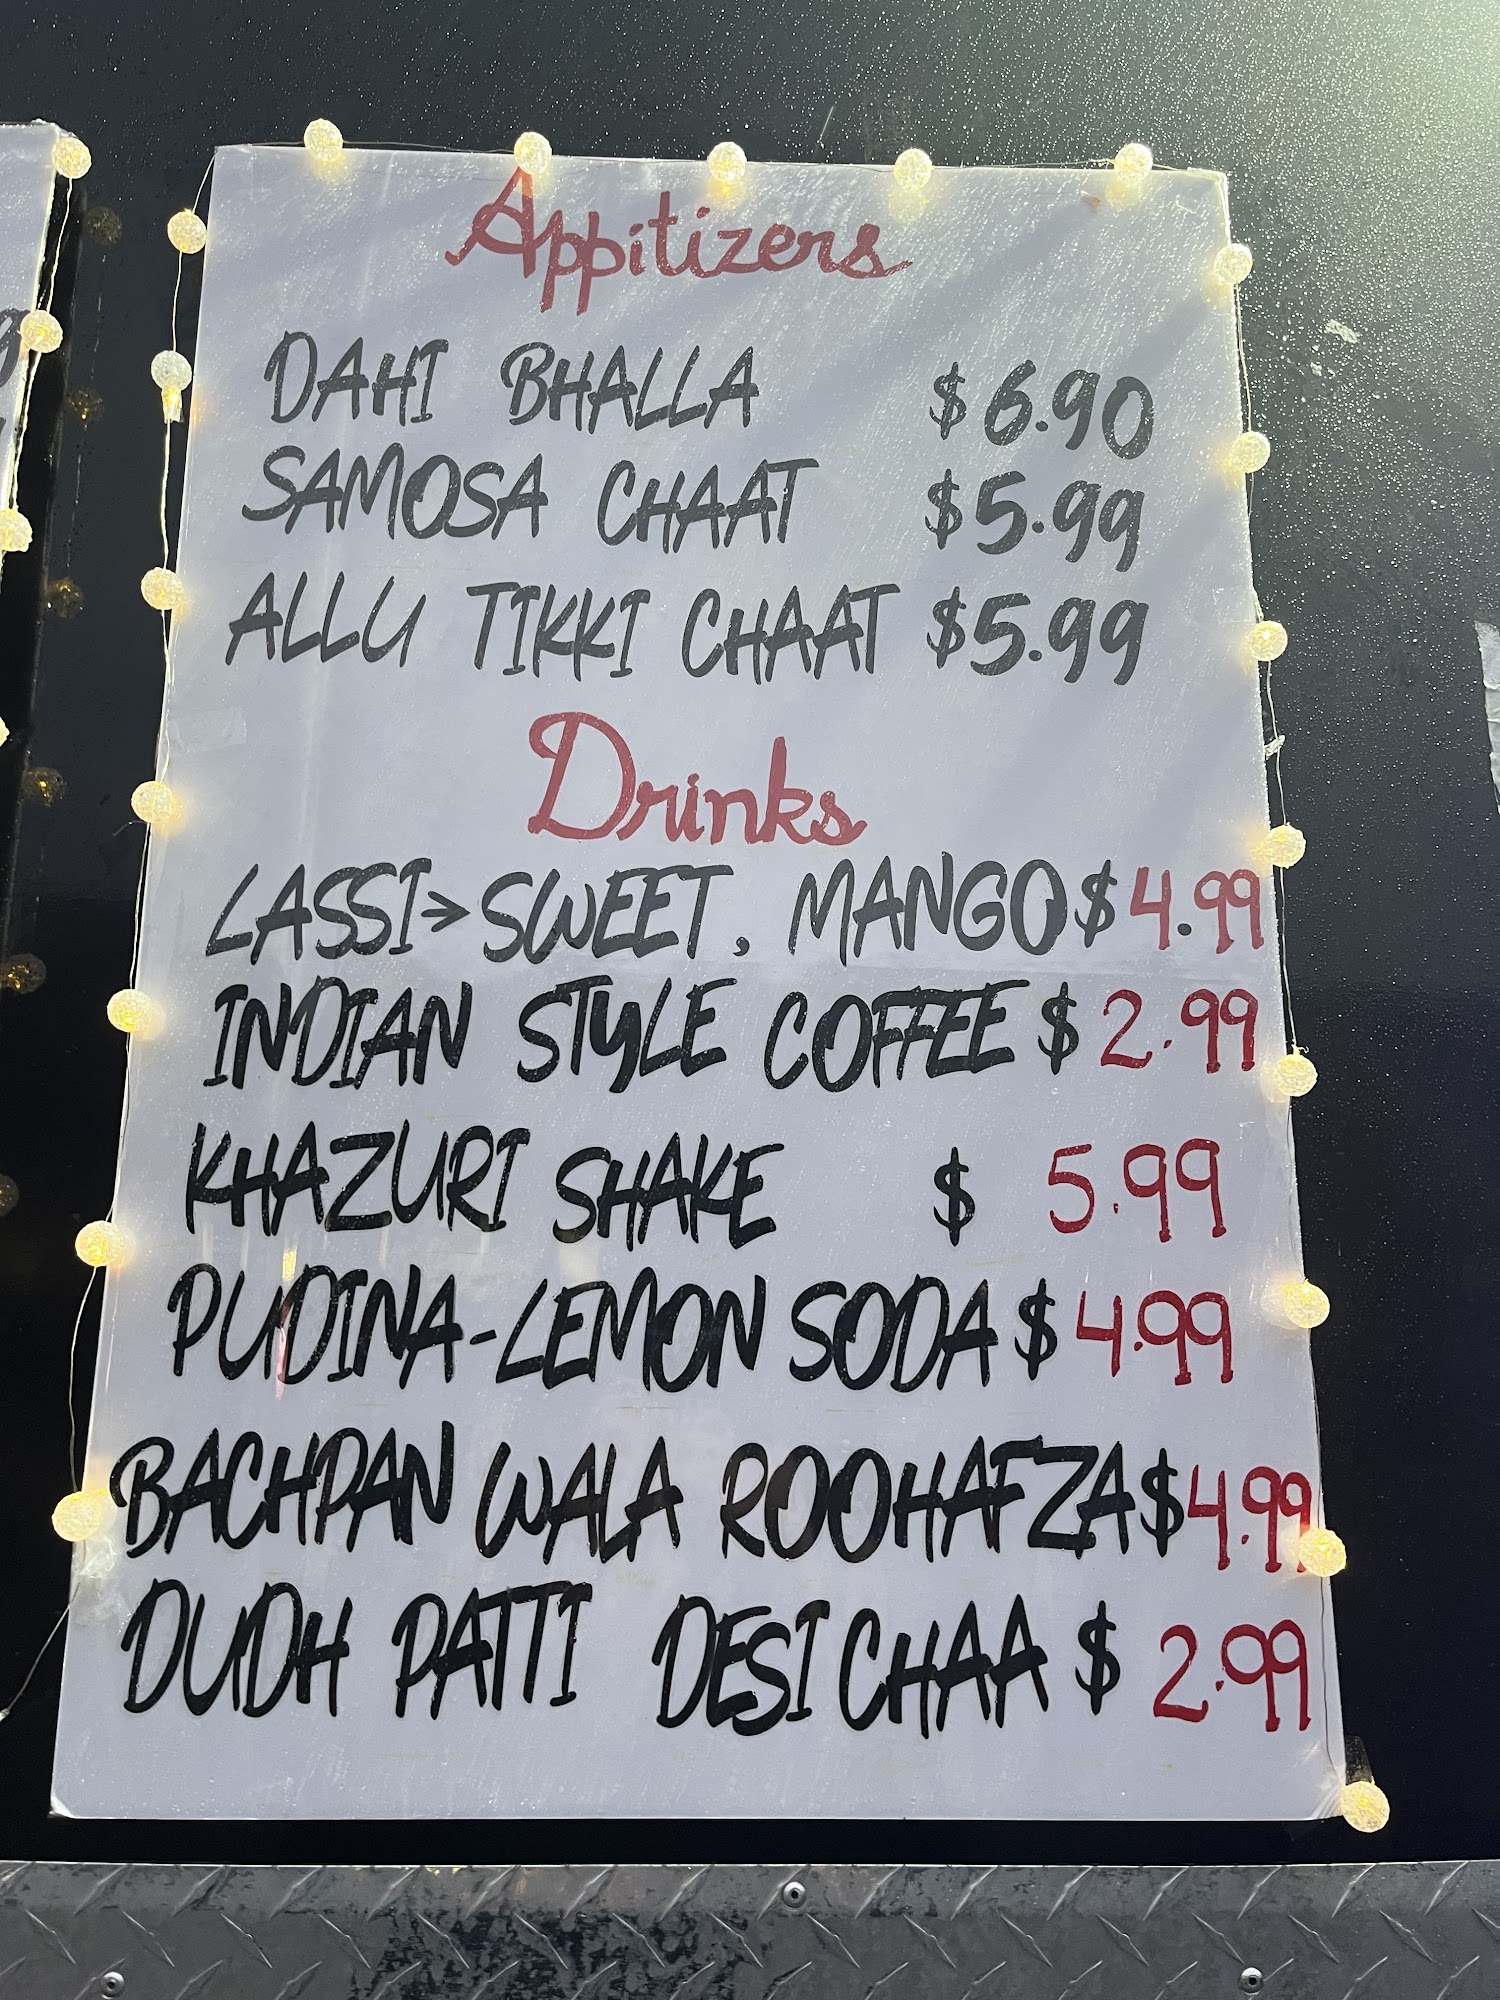 Appitizers
DAHI BHALLA $6.90
SAMOSA CHAAT $5.99
ALLU TIKKI CHAAT $5.99
Drinks
LASSI→SWEET, MANGO $4.99
INDIAN STYLE COFFEE $2.99
KHAZURI SHAKE $5.99
PUDINA-LEMON SODA $4.99
BACHPAN WALA ROOHAFZA $4.99
DUDH PATTI DESI CHAA $2.99